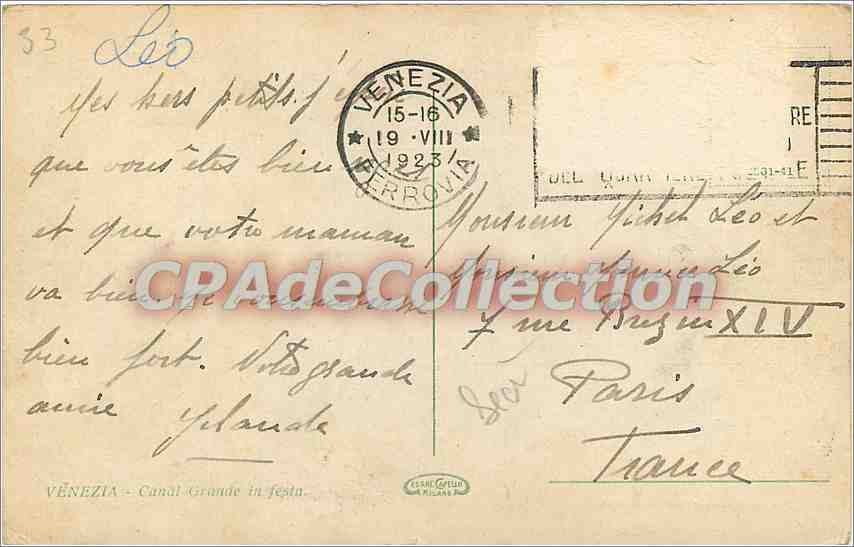 33
Léo
VENEZIA
15-16
19 · VIII
1923
FERROVIA
RE
I
E
DEL
2091-41
petits. j'
que vous êtes bien
et que votre maman
va bien je
bien fort. Votre grande
amie
Yolande
Monsieur Michel Léo et
Monsieur Léo
7 rue XIV
Paris
France
CPAdeCollection
VENEZIA - Canal Grande in festa.
CESARE CAPELLO
MILANO